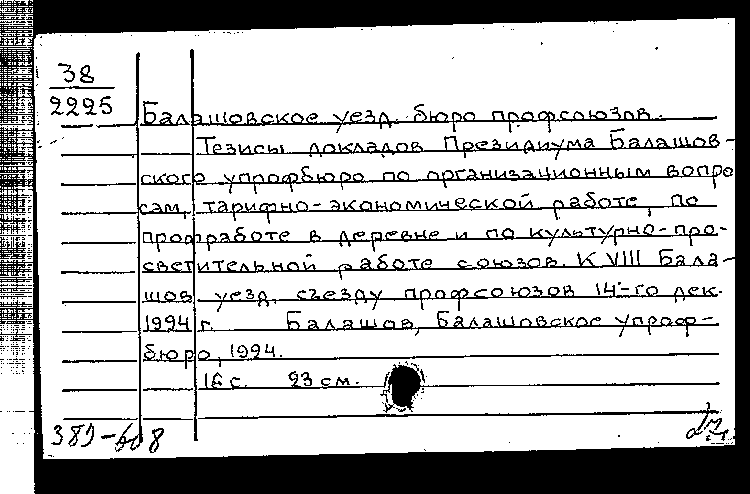 38
2225
Балашовское уезд. бюро профсоюзов.
Тезисы докладов Президиума Балашов-
ского упрофбюро по организационным вопро
сам, тарифно-экономической работе, по
профработе в деревне и по культурно-про-
светительной работе союзов. К VIII Бала-
шов. уезд. съезду профсоюзов 14-го дек.
1924 г. Балашов, Балашовское упроф-
бюро, 1924.
16 с. 23 см.
389-608